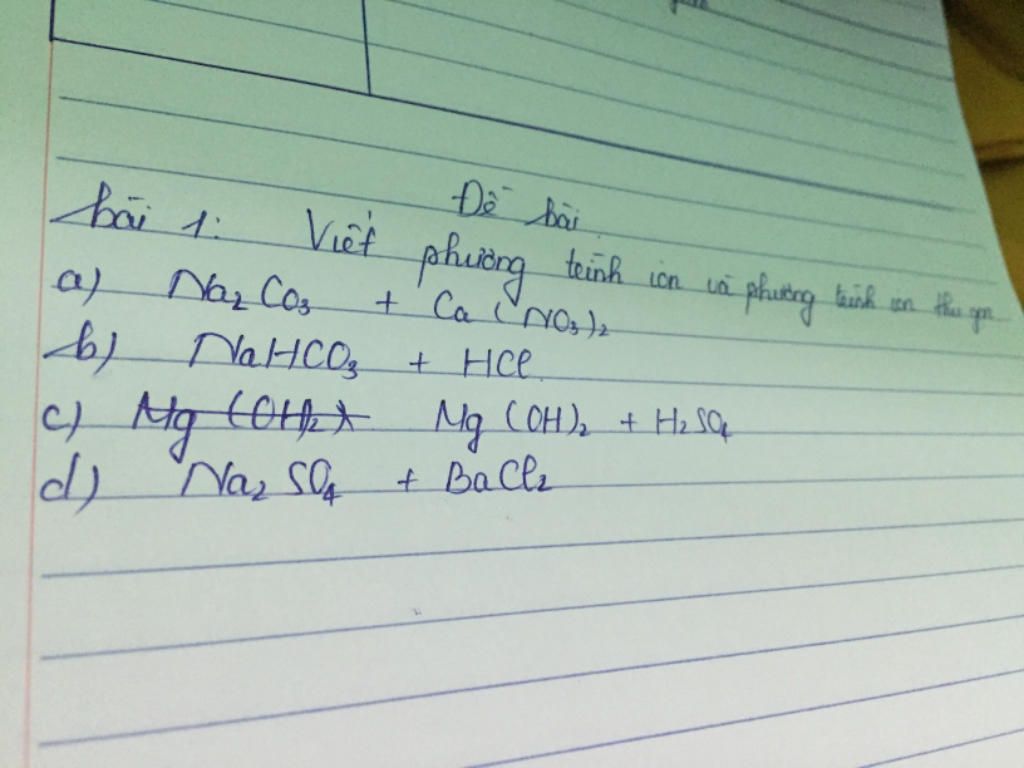 Đề bài
bài 1: Viết phương trình ion và phương trình ion thu gọn
a) Na2CO3 + Ca(NO3)2
b) NaHCO3 + HCl
c) Mg(OH)2 + H2SO4
d) Na2SO4 + BaCl2